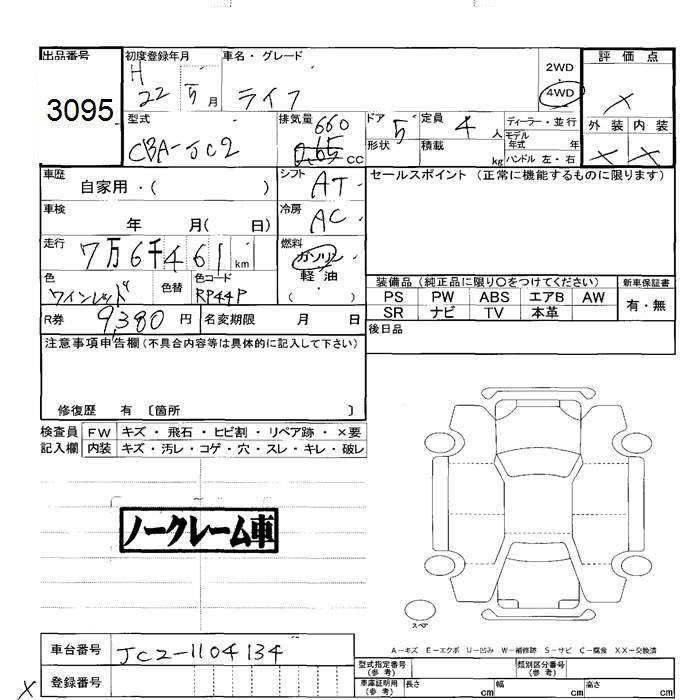 出品番号 初度登録年月 車名・グレード 評価点
3095 H 22 5月 ライフ 2WD 4WD ×
型式 排気量 ドア 定員 ディーラー・並行 外装 内装
CBA-JC2 660 cc 5 4人 モデル年式 年 × ×
形状 積載 kg ハンドル 左・右
車歴 自家用・( ) シフト AT セールスポイント (正常に機能するものに限ります)
車検 年 月( 日) 冷房 AC
走行 7万6千461km 燃料 ガソリン・軽油 ( )
色 ワインレッド 色替 色コード RP44P
装備品 (純正品に限り○をつけてください) 新車保証書
PS PW ABS エアB AW 有・無
SR ナビ TV 本革
R券 9,380円 名変期限 月 日
後日品
注意事項申告欄(不具合内容等は具体的に記入して下さい)
修復歴 有 〔箇所 〕
検査員 FW キズ・飛石・ヒビ割・リペア跡・×要
記入欄 内装 キズ・汚レ・コゲ・穴・スレ・キレ・破レ
ノークレーム車
スペア
A-キズ E-エクボ U-凹み W-補修跡 S-サビ C-腐食 XX-交換済
車台番号 JC2-1104134
型式指定番号(参考) 類別区分番号(参考)
× 登録番号
車庫証明用(参考) 長さ cm 幅 cm 高さ cm